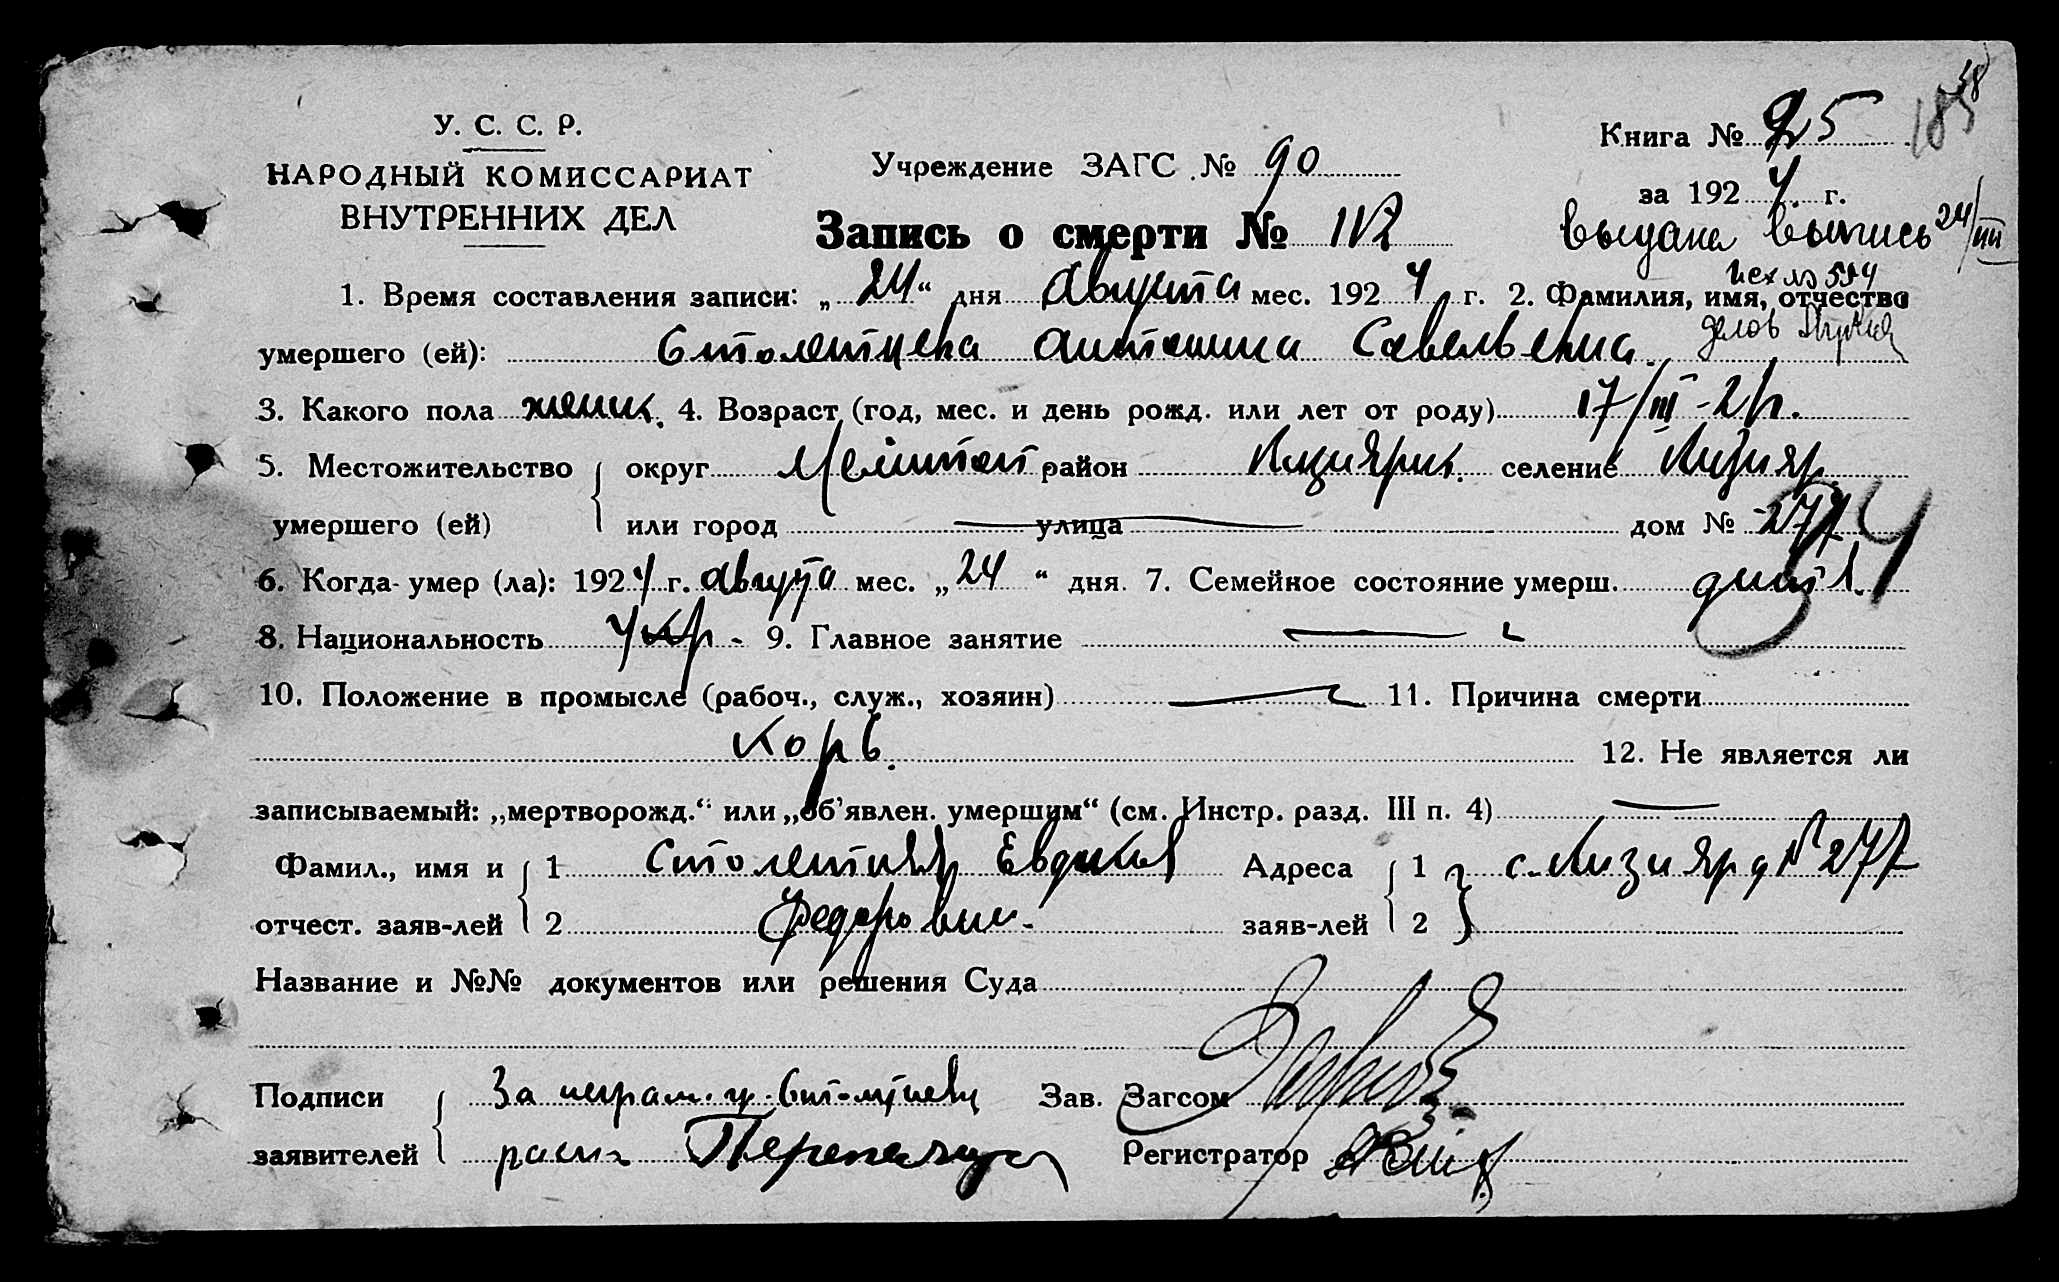 У. С. С. Р.
НАРОДНЫЙ КОМИССАРИАТ
ВНУТРЕННИХ ДЕЛ
Учреждение ЗАГС № 90
Книга № 25
за 1924 г.
Запись о смерти № 112
выдана выпись 24/III
Исх №
1. Время составления записи: „24“ дня Августа мес. 1924 г. 2. Фамилия, имя, отчество
умершего (ей): Столетнева Антонина Савельевна
3. Какого пола женск. 4. Возраст (год, мес. и день рожд. или лет от роду) 17/III - 2 г.
5. Местожительство округ Мелитоп район Акимовск. селение Кизияр
умершего (ей) или город — улица — дом № 277
6. Когда умер (ла): 1924 г. августа мес. „24“ дня. 7. Семейное состояние умерш. дитя
8. Национальность Укр - 9. Главное занятие —
10. Положение в промысле (рабоч., служ., хозяин) — 11. Причина смерти
Корь.
12. Не является ли
записываемый: „мертворожд.“ или „об'явлен. умершим“ (см. Инстр. разд. III п. 4) —
Фамил., имя и 1 Столетнея Евдокия Адреса 1 с. Кизияр д № 277
отчест. заяв-лей 2 Федоровн. заяв-лей 2
Название и №№ документов или решения Суда
Подписи За неграм. гр. Зав. Загсом
заявителей расп Регистратор